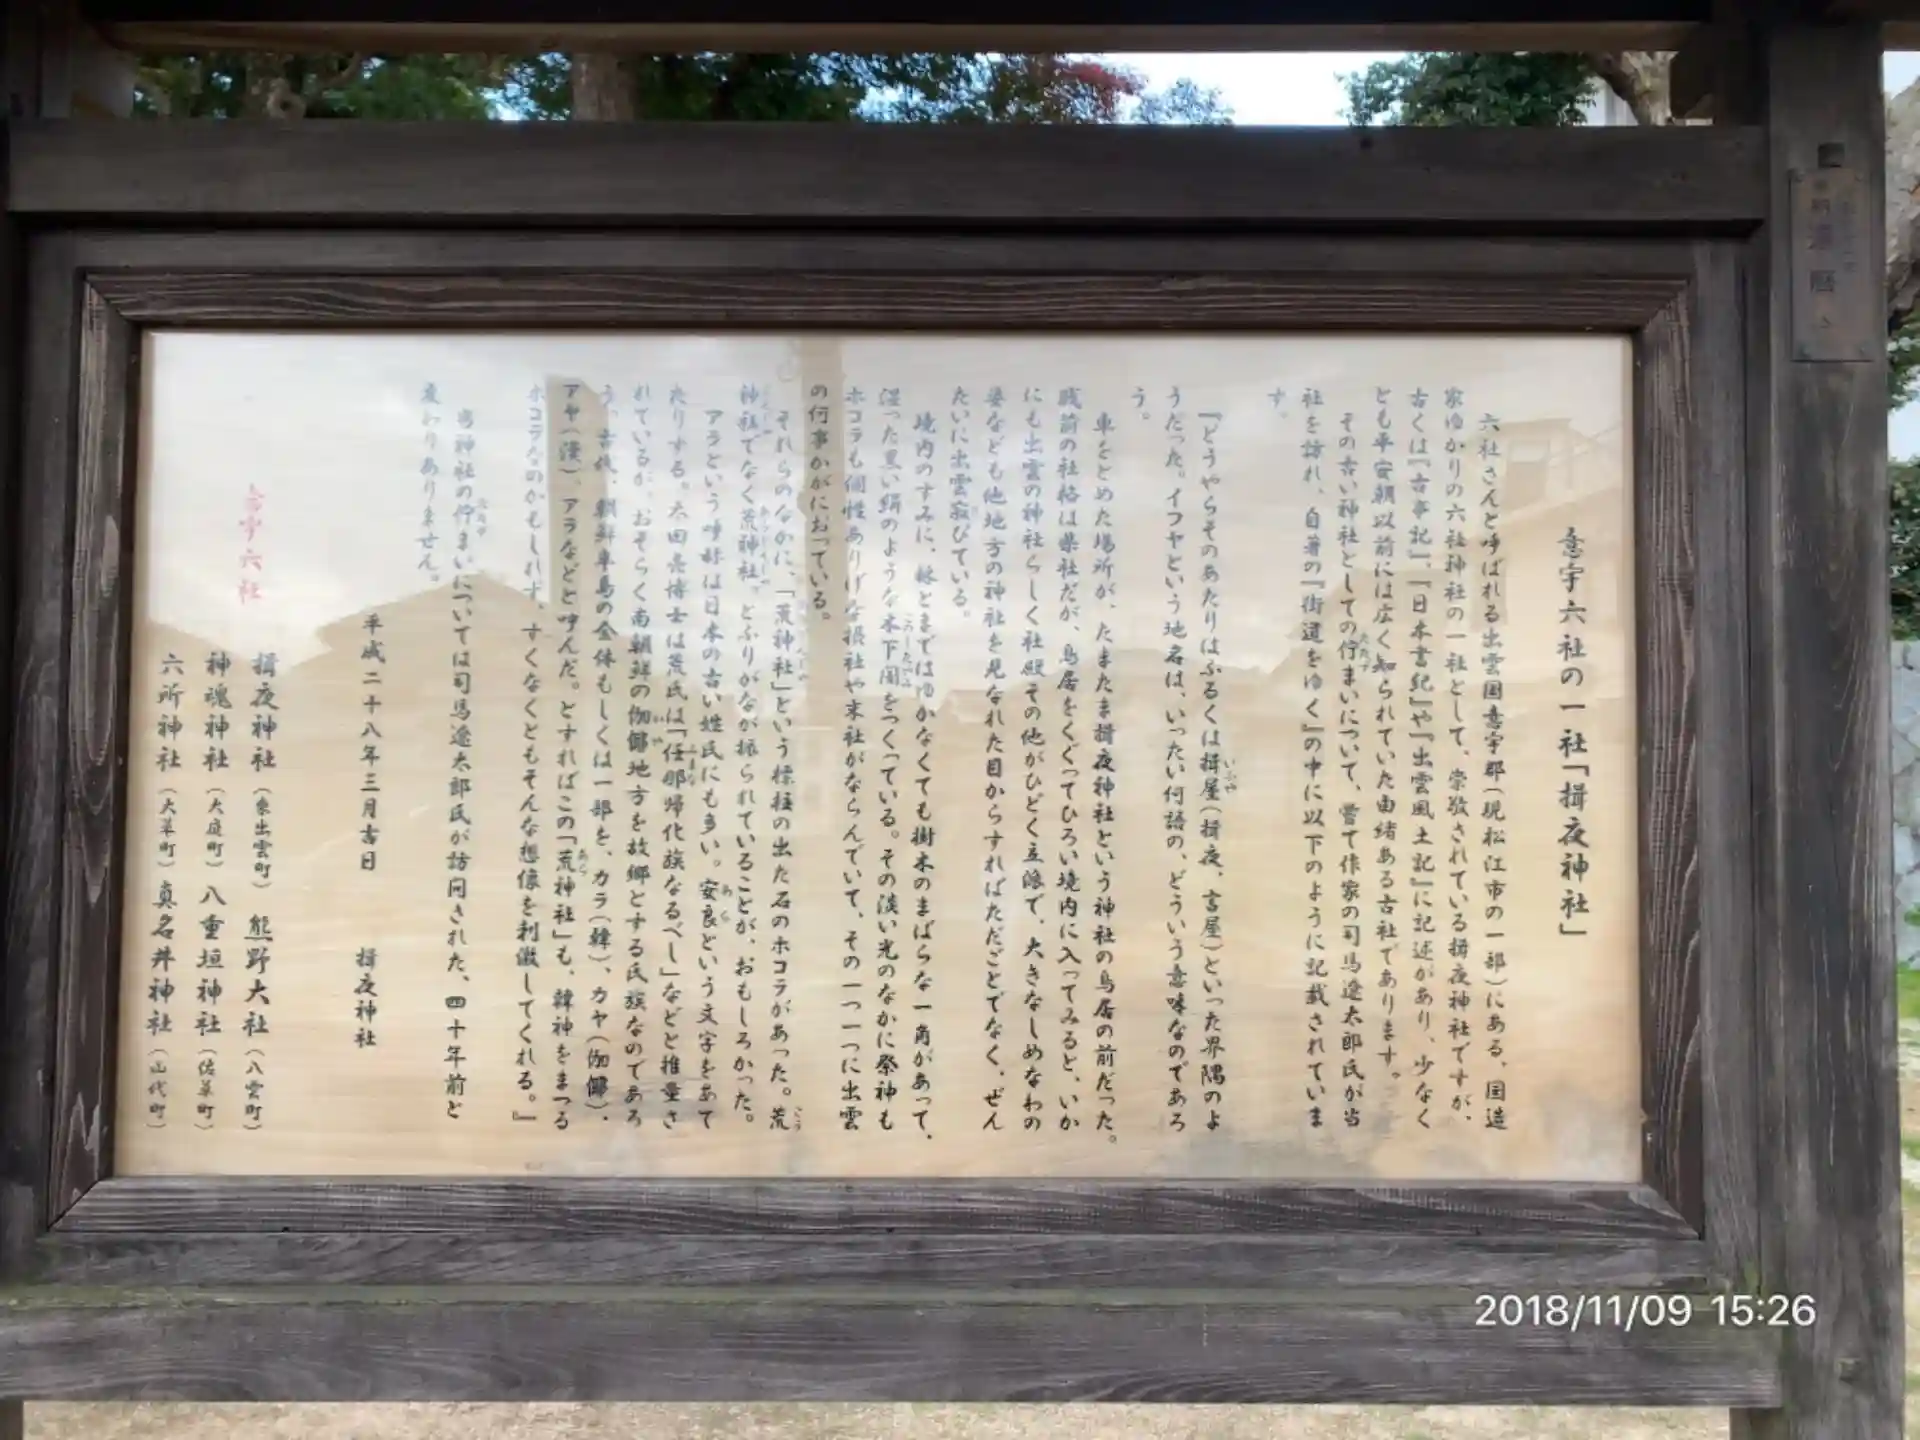 意宇六社の一社「揖夜神社」
六社さんと呼ばれる出雲国意宇郡(現松江市の一部)にある、国造
家ゆかりの六社神社の一社として、崇敬されている揖夜神社ですが、
古くは『古事記』、『日本書紀』や『出雲風土記』に記述があり、少なく
とも平安朝以前には広く知られていた由緒ある古社であります。
その古い神社としての佇まいについて、嘗て作家の司馬遼太郎氏が当
社を訪れ、自著の『街道をゆく』の中に以下のように記載されていま
す。
『どうやらそのあたりはふるくは揖屋(揖夜、言屋)といった界隈のよ
うだった。イフヤという地名は、いったい何語の、どういう意味なのであろ
う。
車をとめた場所が、たまたま揖夜神社という神社の鳥居の前だった。
戦前の社格は県社だが、鳥居をくぐってひろい境内に入ってみると、いか
にも出雲の神社らしく社殿その他がひどく立派で、大きなしめなわの
姿なども他地方の神社を見なれた目からすればただごとでなく、ぜん
たいに出雲寂びている。
境内のすみに、林とまではゆかなくても樹木のまばらな一角があって、
湿った黒い絹のような木下闇をつくっている。その淡い光のなかに祭神も
ホコラも個性ありげな摂社や末社がならんでいて、その一つ一つに出雲
の何事かがにおっている。
それらのなかに、「荒神社」という標柱の出た石のホコラがあった。荒
神社でなく荒神社。とふりがなが振られていることが、おもしろかった。
アラという呼称は日本の古い姓氏にも多い。安良という文字をあて
たりする。太田亮博士は荒氏は「任那帰化族なるべし」などと推量さ
れているが、おそらく南朝鮮の伽倻地方を故郷とする氏族なのであろ
う。古代、朝鮮半島の全体もしくは一部を、カラ(韓)、カヤ(伽倻)、
アヤ(漢)、アラなどと呼んだ。とすればこの「荒神社」も、韓神をまつる
ホコラなのかもしれず、すくなくともそんな想像を刺激してくれる。』
当神社の佇まいについては司馬遼太郎氏が訪問された、四十年前と
変わりありません。
平成二十八年三月吉日 揖夜神社
意宇六社
揖夜神社(東出雲町) 熊野大社(八雲町)
神魂神社(大庭町) 八重垣神社(佐草町)
六所神社(大草町) 真名井神社(山代町)
2018/11/09 15:26